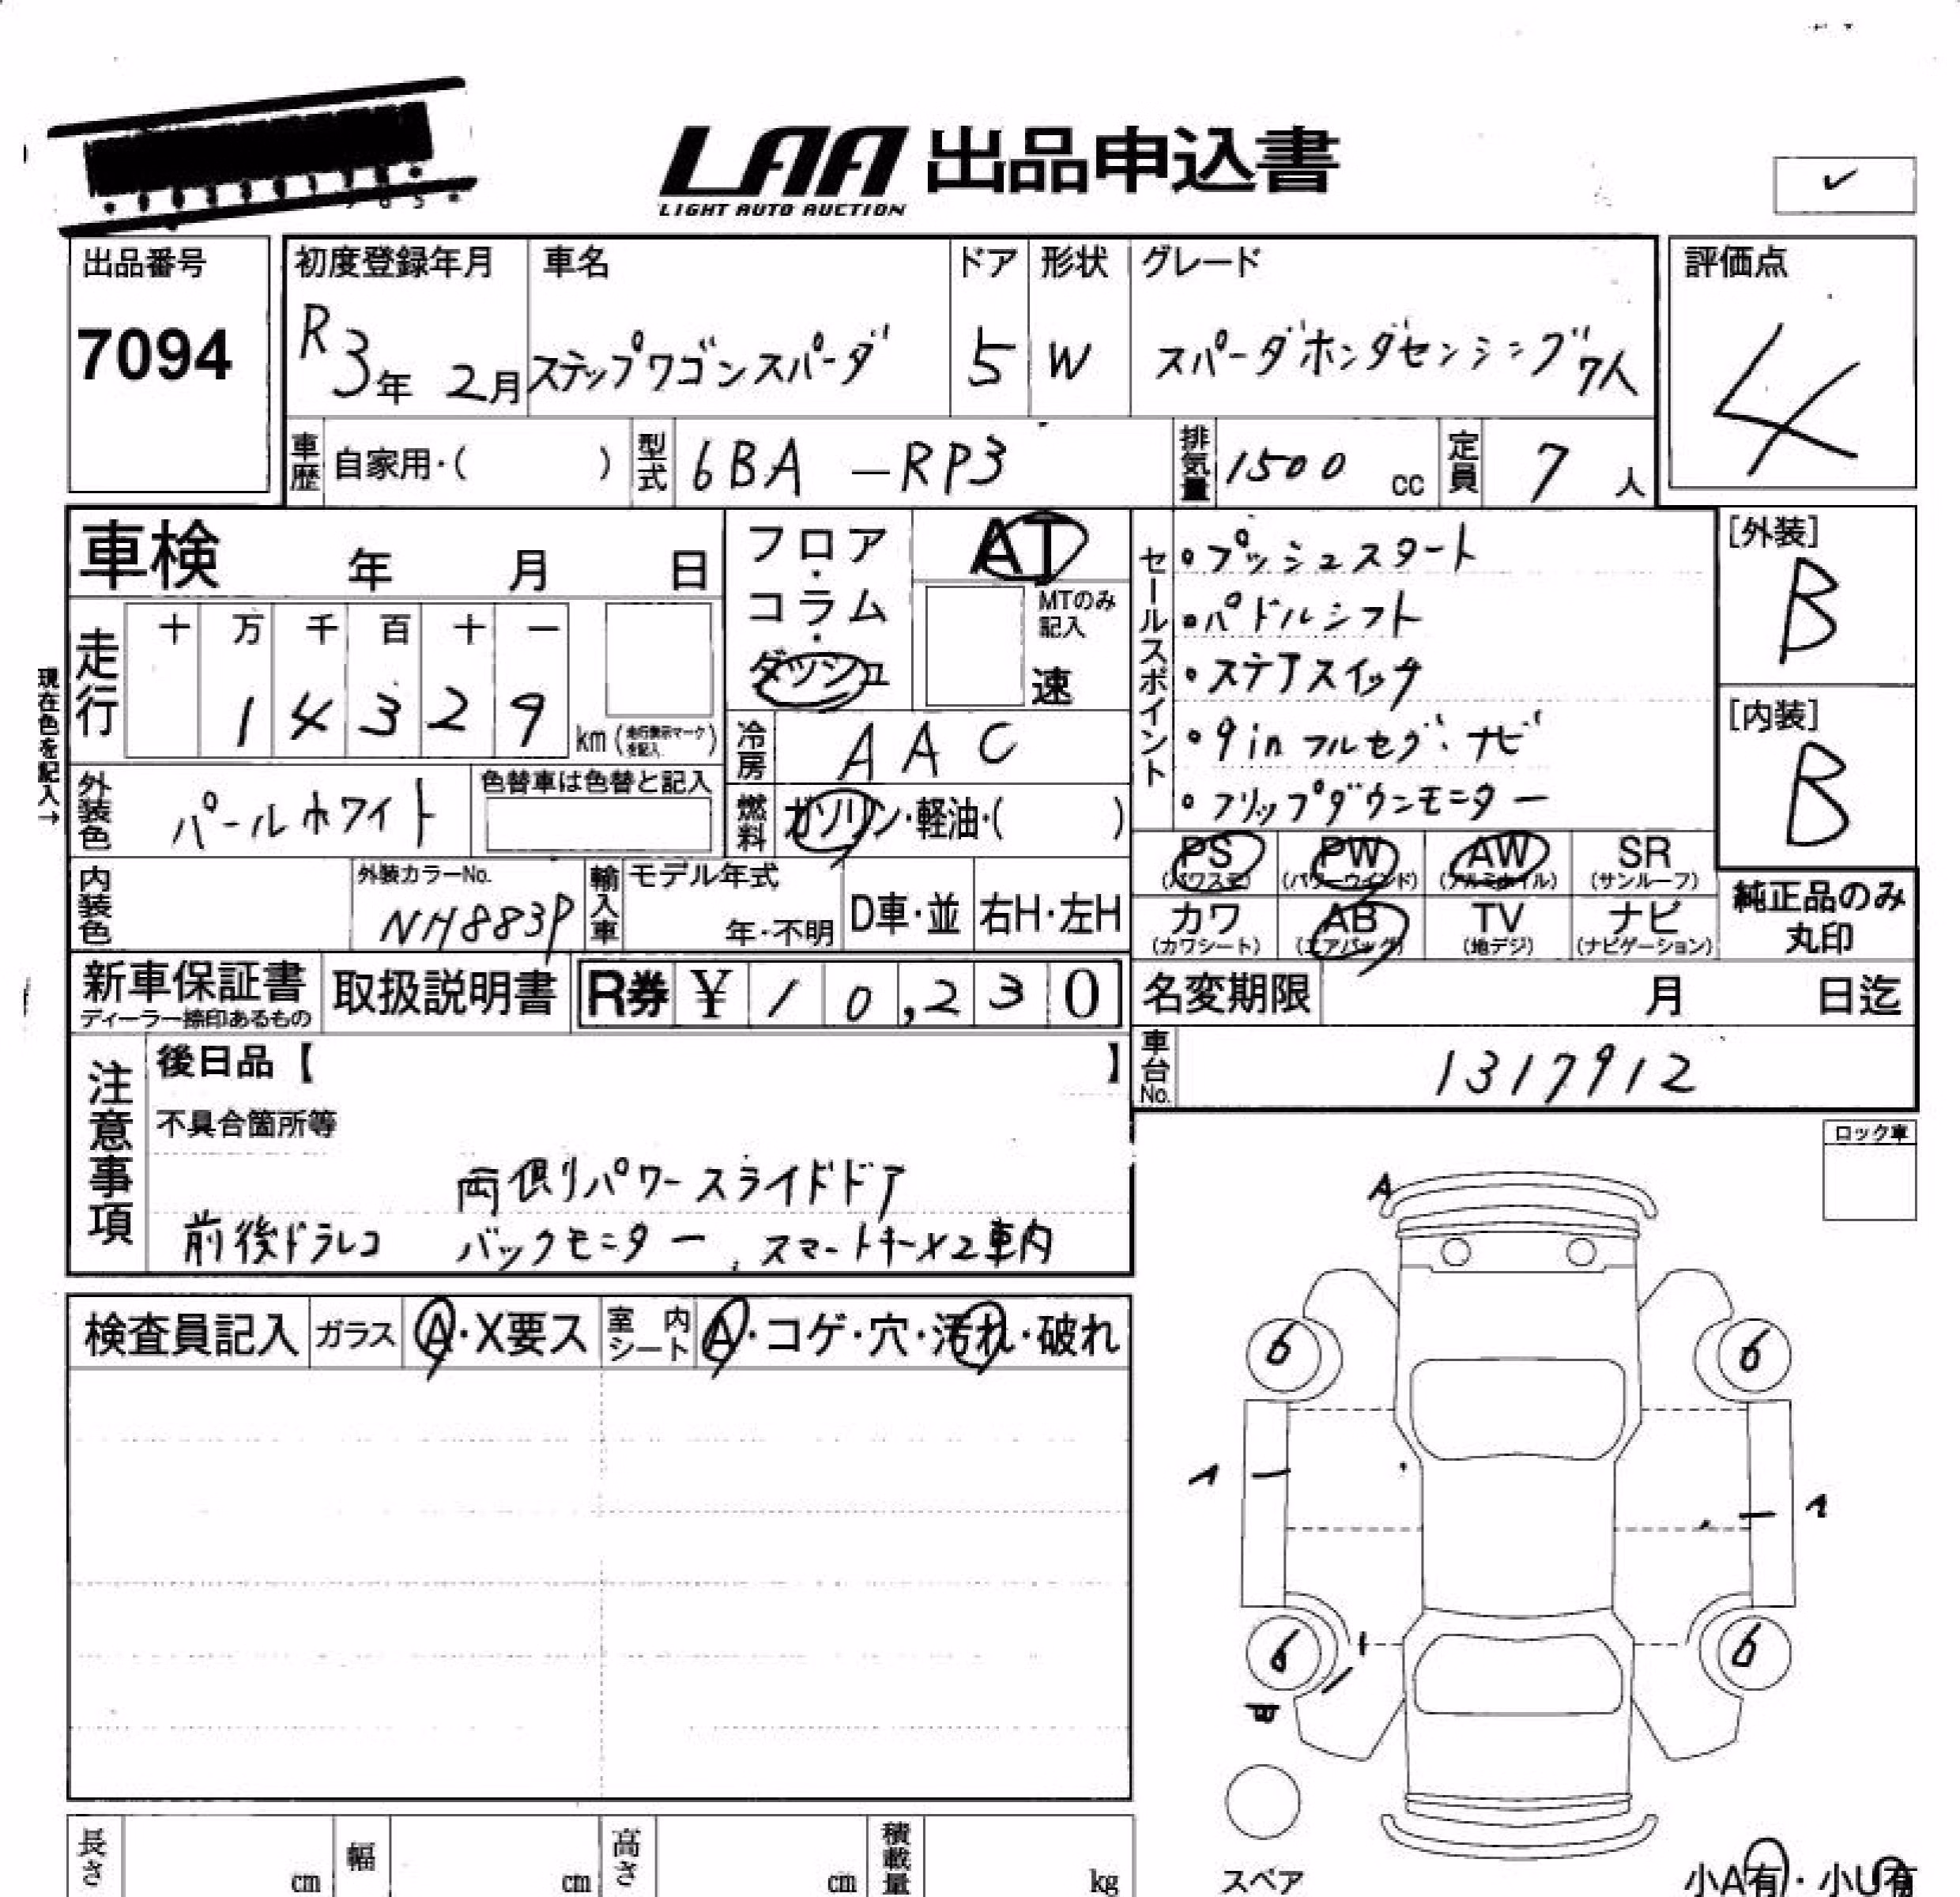 LAA 出品申込書
LIGHT AUTO AUCTION
出品番号
7094
初度登録年月
R3年 2月
車名
ステップワゴンスパーダ
ドア
5
形状
W
グレード
スパーダホンダセンシング 7人
評価点
4
車歴 自家用・( )
型式 6BA-RP3
排気量 1500 cc
定員 7 人
車検 年 月 日
フロア・コラム・ダッシュ
AT
MTのみ記入
速
セールスポイント
・プッシュスタート
・パドルシフト
・ステアスイッチ
・9inフルセグ・ナビ
・フリップダウンモニター
[外装]
B
[内装]
B
現在色を記入→
走行
十 万 千 百 十 一
1 4 3 2 9
km(走行表示マークを記入)
冷房 AAC
外装色 パールホワイト
色替車は色替と記入
燃料 ガソリン・軽油・( )
PS (パワステ)
PW (パワーウインド)
AW (アルミホイル)
SR (サンルーフ)
カワ (カワシート)
AB (エアバッグ)
TV (地デジ)
ナビ (ナビゲーション)
純正品のみ
丸印
内装色
外装カラーNo.
NH883P
輸入車
モデル年式
年・不明
D車・並
右H・左H
新車保証書
ディーラー捺印あるもの
取扱説明書
R券 ¥ 10,230
名変期限 月 日迄
車台No. 1317912
注意事項
後日品【 】
不具合箇所等
両側パワースライドドア
前後ドラレコ バックモニター、スマートキー×2車内
ロック車
検査員記入
ガラス A・X要ス
室内シート A・コゲ・穴・汚れ・破れ
A
6
6
6
6
スペア
小A有・小U有
長さ cm
幅 cm
高さ cm
積載量 kg